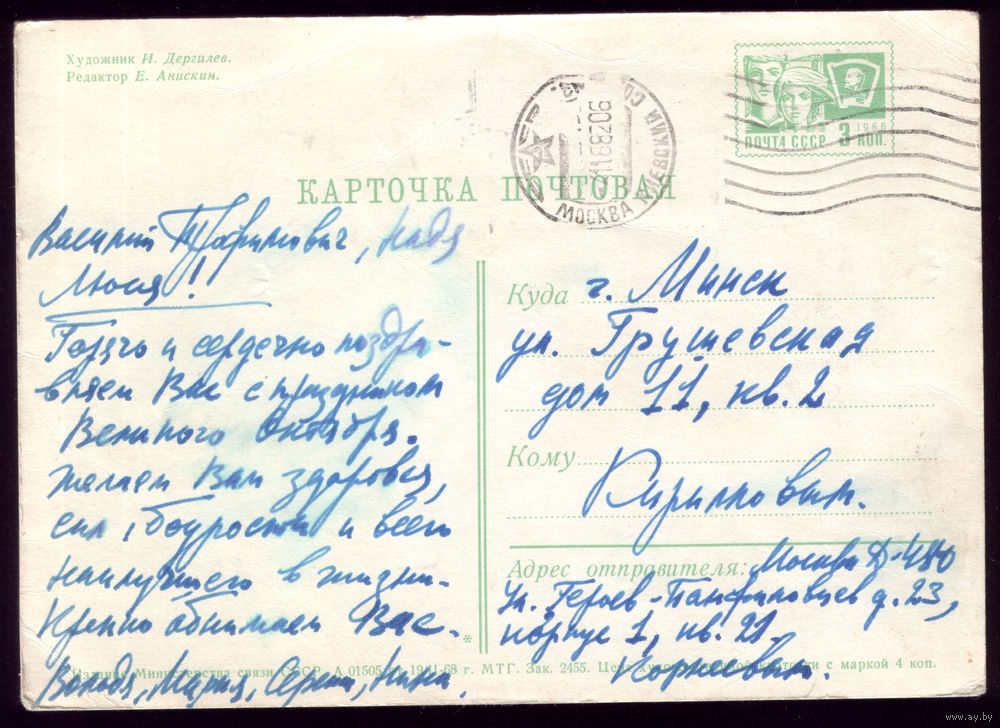 Художник И. Дергилев.
Редактор Е. Анискин.
МОСКВА
1966
ПОЧТА СССР 3 КОП.
КАРТОЧКА ПОЧТОВАЯ
Василий Трофимович, Надя
Люся!
Горячо и сердечно поздра-
вляем Вас с праздником
Великого Октября.
Желаем Вам здоровья,
сил, бодрости и всего
наилучшего в жизни.
Крепко обнимаем Вас.
Володя, Мария, Нина.
Куда г. Минск
ул. Грушевская
дом 11, кв. 2
Кому
Кирилковым.
Адрес отправителя: Москва Д-480
ул. Героев-Панфиловцев д. 23,
корпус 1, кв. 21.
Корневым.
Издание Министерства связи СССР. А 01505 от 19/II-68 г. МТГ. Зак. 2455. Цена художественной карточки с маркой 4 коп.
www.ay.by